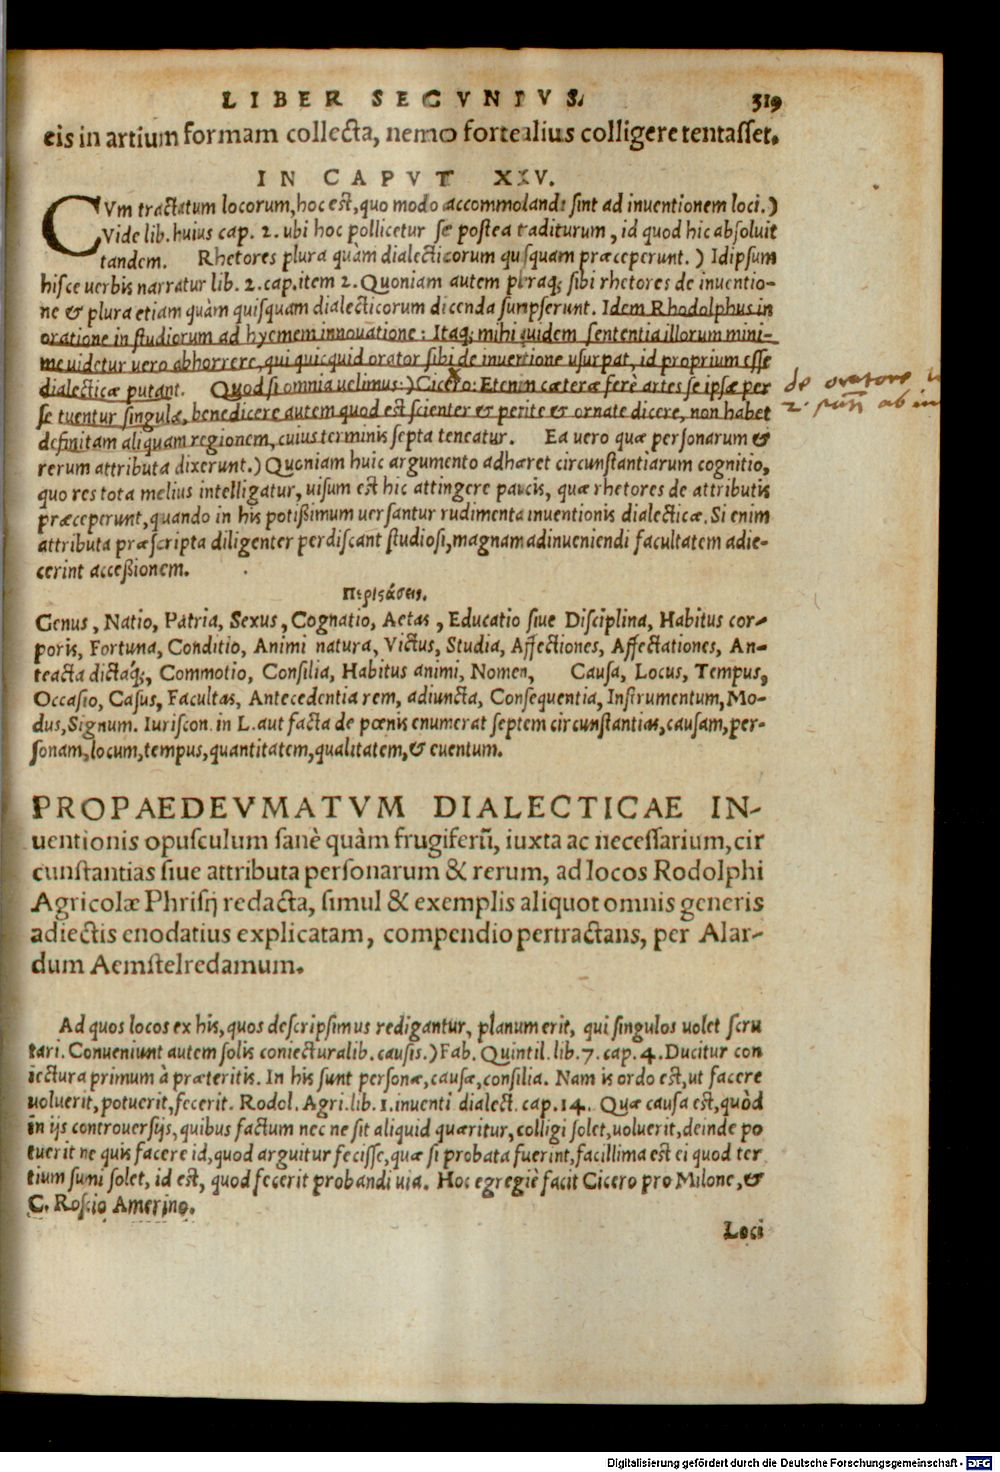 LIBER SECVNDVS. 319
eis in artium formam collecta, nemo forte alius colligere tentasset.
IN CAPVT XXV.
CVm tractatum locorum, hoc est, quo modo accommolandi sint ad inuentionem loci.)
Vide lib. huius cap. 2. ubi hoc pollicetur se postea traditurum, id quod hic absoluit
tandem. Rhetores plura quàm dialecticorum quisquam præceperunt.) Idipsum
hisce uerbis narratur lib. 2. cap. item 2. Quoniam autem pleraq; sibi rhetores de inuentio-
ne & plura etiam quàm quisquam dialecticorum dicenda sumpserunt. Idem Rhodolphus in
oratione in studiorum ad hyemem innouatione: Itaq; mihi quidem sententia illorum mini-
me uidetur uero abhorrere, qui quicquid orator sibi de inuentione usurpat, id proprium esse
dialecticæ putant. Quod si omnia uelimus.) Cicero: Etenim cæteræ ferè artes se ipsæ per
se tuentur singulæ, benedicere autem quod est scienter & perite & ornate dicere, non habet
definitam aliquam regionem, cuius terminis septa teneatur. Ea uero quæ personarum &
rerum attributa dixerunt.) Quoniam huic argumento adhæret circunstantiarum cognitio,
quo res tota melius intelligatur, uisum est hic attingere paucis, quæ rhetores de attributis
præceperunt, quando in his potißimum uersantur rudimenta inuentionis dialecticæ. Si enim
attributa præscripta diligenter perdiscant studiosi, magnam ad inueniendi facultatem adie-
cerint acceßionem.
de oratore
2. ab in
Περιςάσεις.
Genus, Natio, Patria, Sexus, Cognatio, Aetas, Educatio siue Disciplina, Habitus cor-
poris, Fortuna, Conditio, Animi natura, Victus, Studia, Affectiones, Affectationes, An-
teacta dictaq́;, Commotio, Consilia, Habitus animi, Nomen, Causa, Locus, Tempus,
Occasio, Casus, Facultas, Antecedentia rem, adiuncta, Consequentia, Instrumentum, Mo-
dus, Signum. Iuriscon. in L. aut facta de pœnis enumerat septem circunstantias, causam, per-
sonam, locum, tempus, quantitatem, qualitatem, & euentum.
PROPAEDEVMATVM DIALECTICAE IN-
uentionis opusculum sanè quàm frugiferũ, iuxta ac necessarium, cir
cunstantias siue attributa personarum & rerum, ad locos Rodolphi
Agricolæ Phrisij redacta, simul & exemplis aliquot omnis generis
adiectis enodatius explicatam, compendio pertractans, per Alar-
dum Aemstelredamum.
Ad quos locos ex his, quos descripsimus redigantur, planum erit, qui singulos uolet scru
tari. Conueniunt autem solis coniecturalib. causis.) Fab. Quintil. lib. 7. cap. 4. Ducitur con
iectura primum à præteritis. In his sunt personæ, causæ, consilia. Nam is ordo est, ut facere
uoluerit, potuerit, fecerit. Rodol. Agri. lib. 1. inuenti dialect. cap. 14. Quæ causa est, quòd
in ijs controuersijs, quibus factum nec ne sit aliquid quæritur, colligi solet, uoluerit, deinde po
tuerit ne quis facere id, quod arguitur fecisse, quæ si probata fuerint, facillima est ei quod ter
tium sumi solet, id est, quod fecerit probandi uia. Hoc egregiè facit Cicero pro Milone, &
C. Roscio Amerino.
Loci
Digitalisierung gefördert durch die Deutsche Forschungsgemeinschaft - DFG